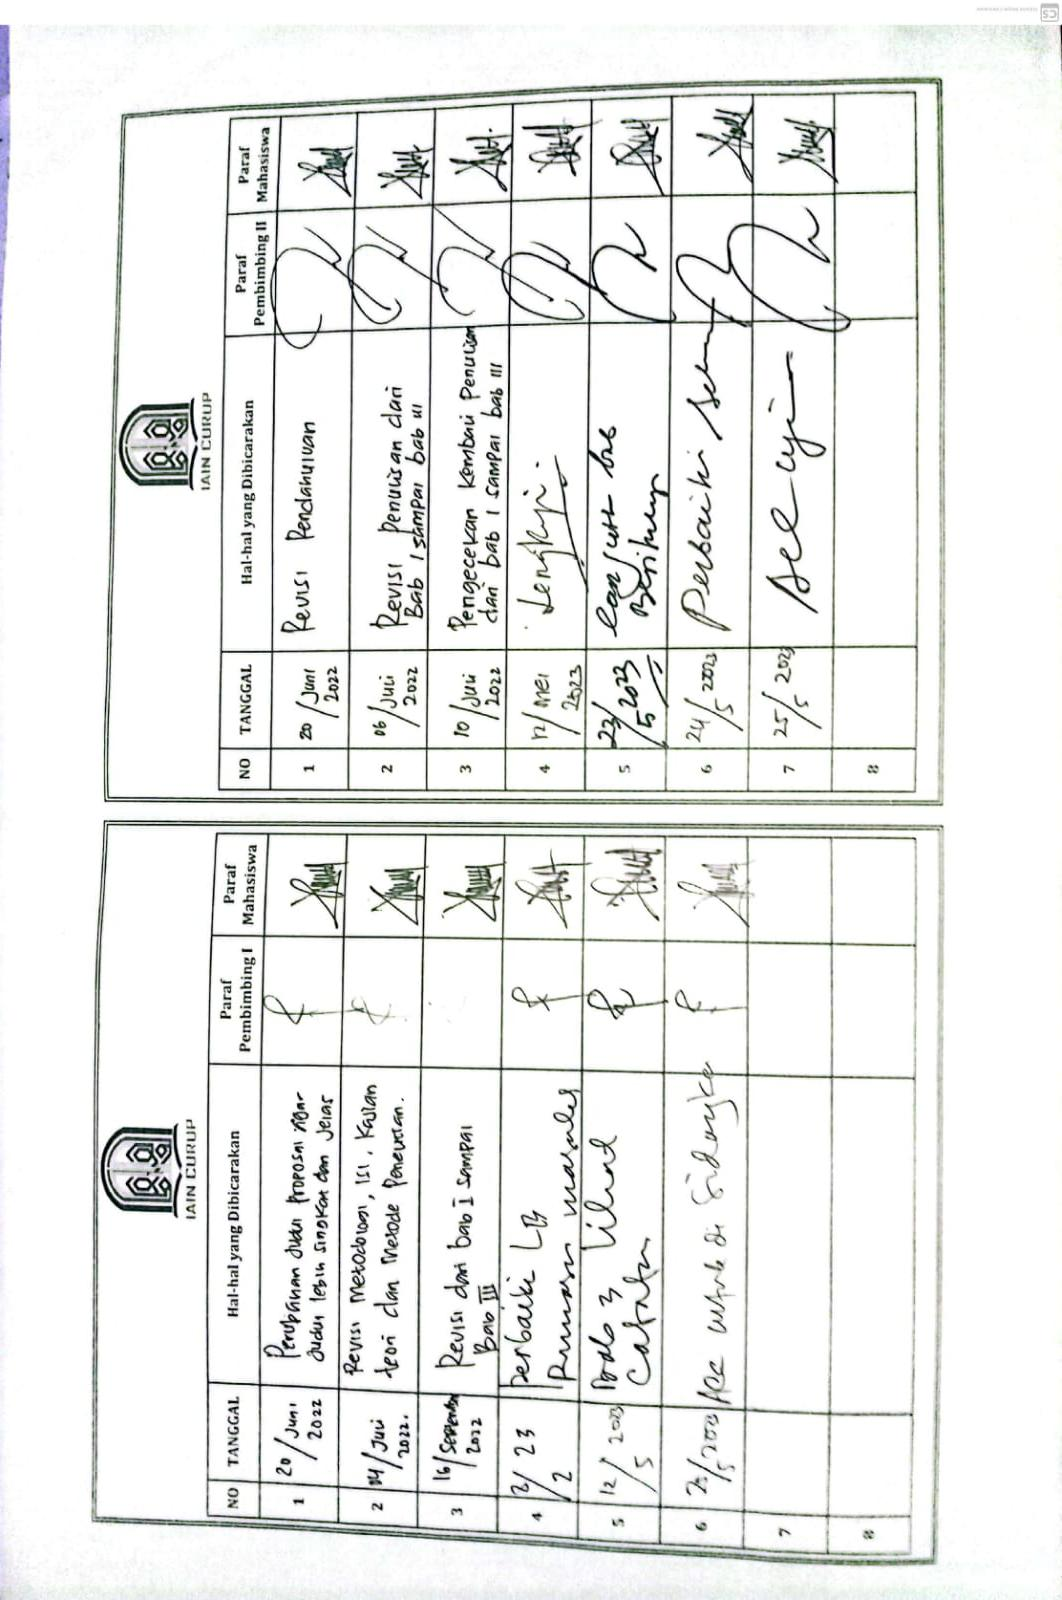 IAIN CURUP
NO TANGGAL Hal-hal yang Dibicarakan Paraf Pembimbing I Paraf Mahasiswa
1 20/Juni 2022 Perubahan Judul Proposal agar
Judul lebih singkat dan Jelas
2 14/Juli 2022. Revisi Metodologi, ISI, Kajian
teori dan Metode Penelitian.
3 16/September 2022 Revisi dari bab I sampai
Bab III
4 2/2 23 Perbaiki LB
Rumusan masalah
5 12/5 2023 Bab 3 Lihat
Catatan
6 /5 2023 Acc untuk di Sidangkan
7
8
IAIN CURUP
NO TANGGAL Hal-hal yang Dibicarakan Paraf Pembimbing II Paraf Mahasiswa
1 20/Juni 2022 Revisi Pendahuluan
2 06/Juli 2022 Revisi Penulisan dari
Bab I sampai bab III
3 10/Juli 2022 Pengecekan Kembali Penulisan
dari bab I sampai bab III
4 12/Mei 2023 Lengkapi
5 23/5 2023 Lanjutkan bab
Berikutnya
6 24/5 2023 Perbaiki
7 25/5 2023 Acc Ujian
8